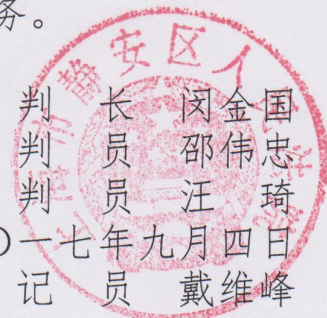 务。
判 长 闵金国
判 员 邵伟忠
判 员 汪 琦
〇一七年九月四日
记 员 戴维峰
市静安区人